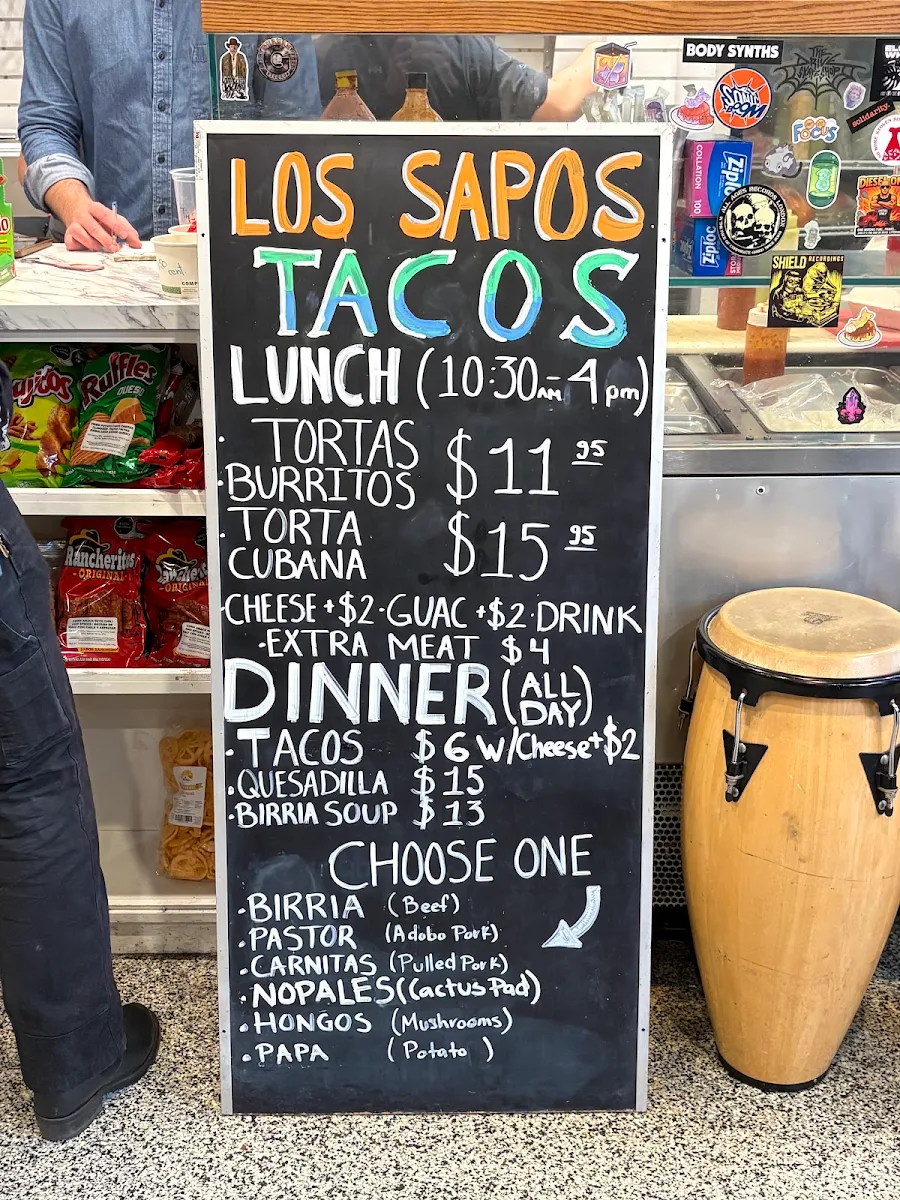 LOS SAPOS
TACOS
LUNCH (10:30AM-4pm)
· TORTAS $11 95
· BURRITOS
· TORTA $15 95
CUBANA
· CHEESE +$2 · GUAC +$2 · DRINK
· EXTRA MEAT $4
DINNER (ALL DAY)
· TACOS $6 W/Cheese +$2
· QUESADILLA $15
· BIRRIA SOUP $13
CHOOSE ONE
· BIRRIA (Beef)
· PASTOR (Adobo Pork)
· CARNITAS (Pulled Pork)
· NOPALES (Cactus Pad)
· HONGOS (Mushrooms)
· PAPA (Potato )
BODY SYNTHS
solidarity.
FOCUS
COLLATION 100
Ziploc
Ziploc
SHIELD RECORDINGS
Ruffles
QUESO
Rancheritos
ORIGINAL
ORIGINAL